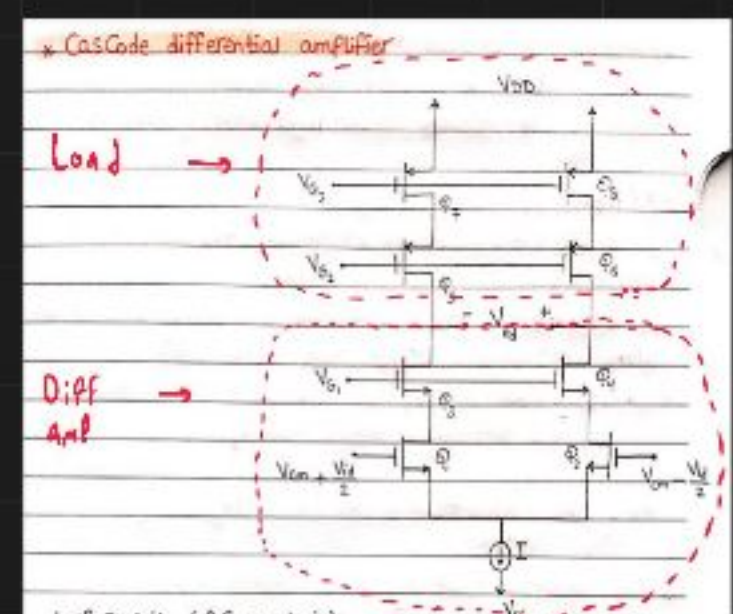 * CasCode differential amplifier
VDD
Load →
VG3
Q7
Q8
VG2
Q5
Q6
- Vod +
Diff
AMP →
VG1
Q3
Q4
Q1
Q2
Vcm + Vid/2
Vcm - Vid/2
I